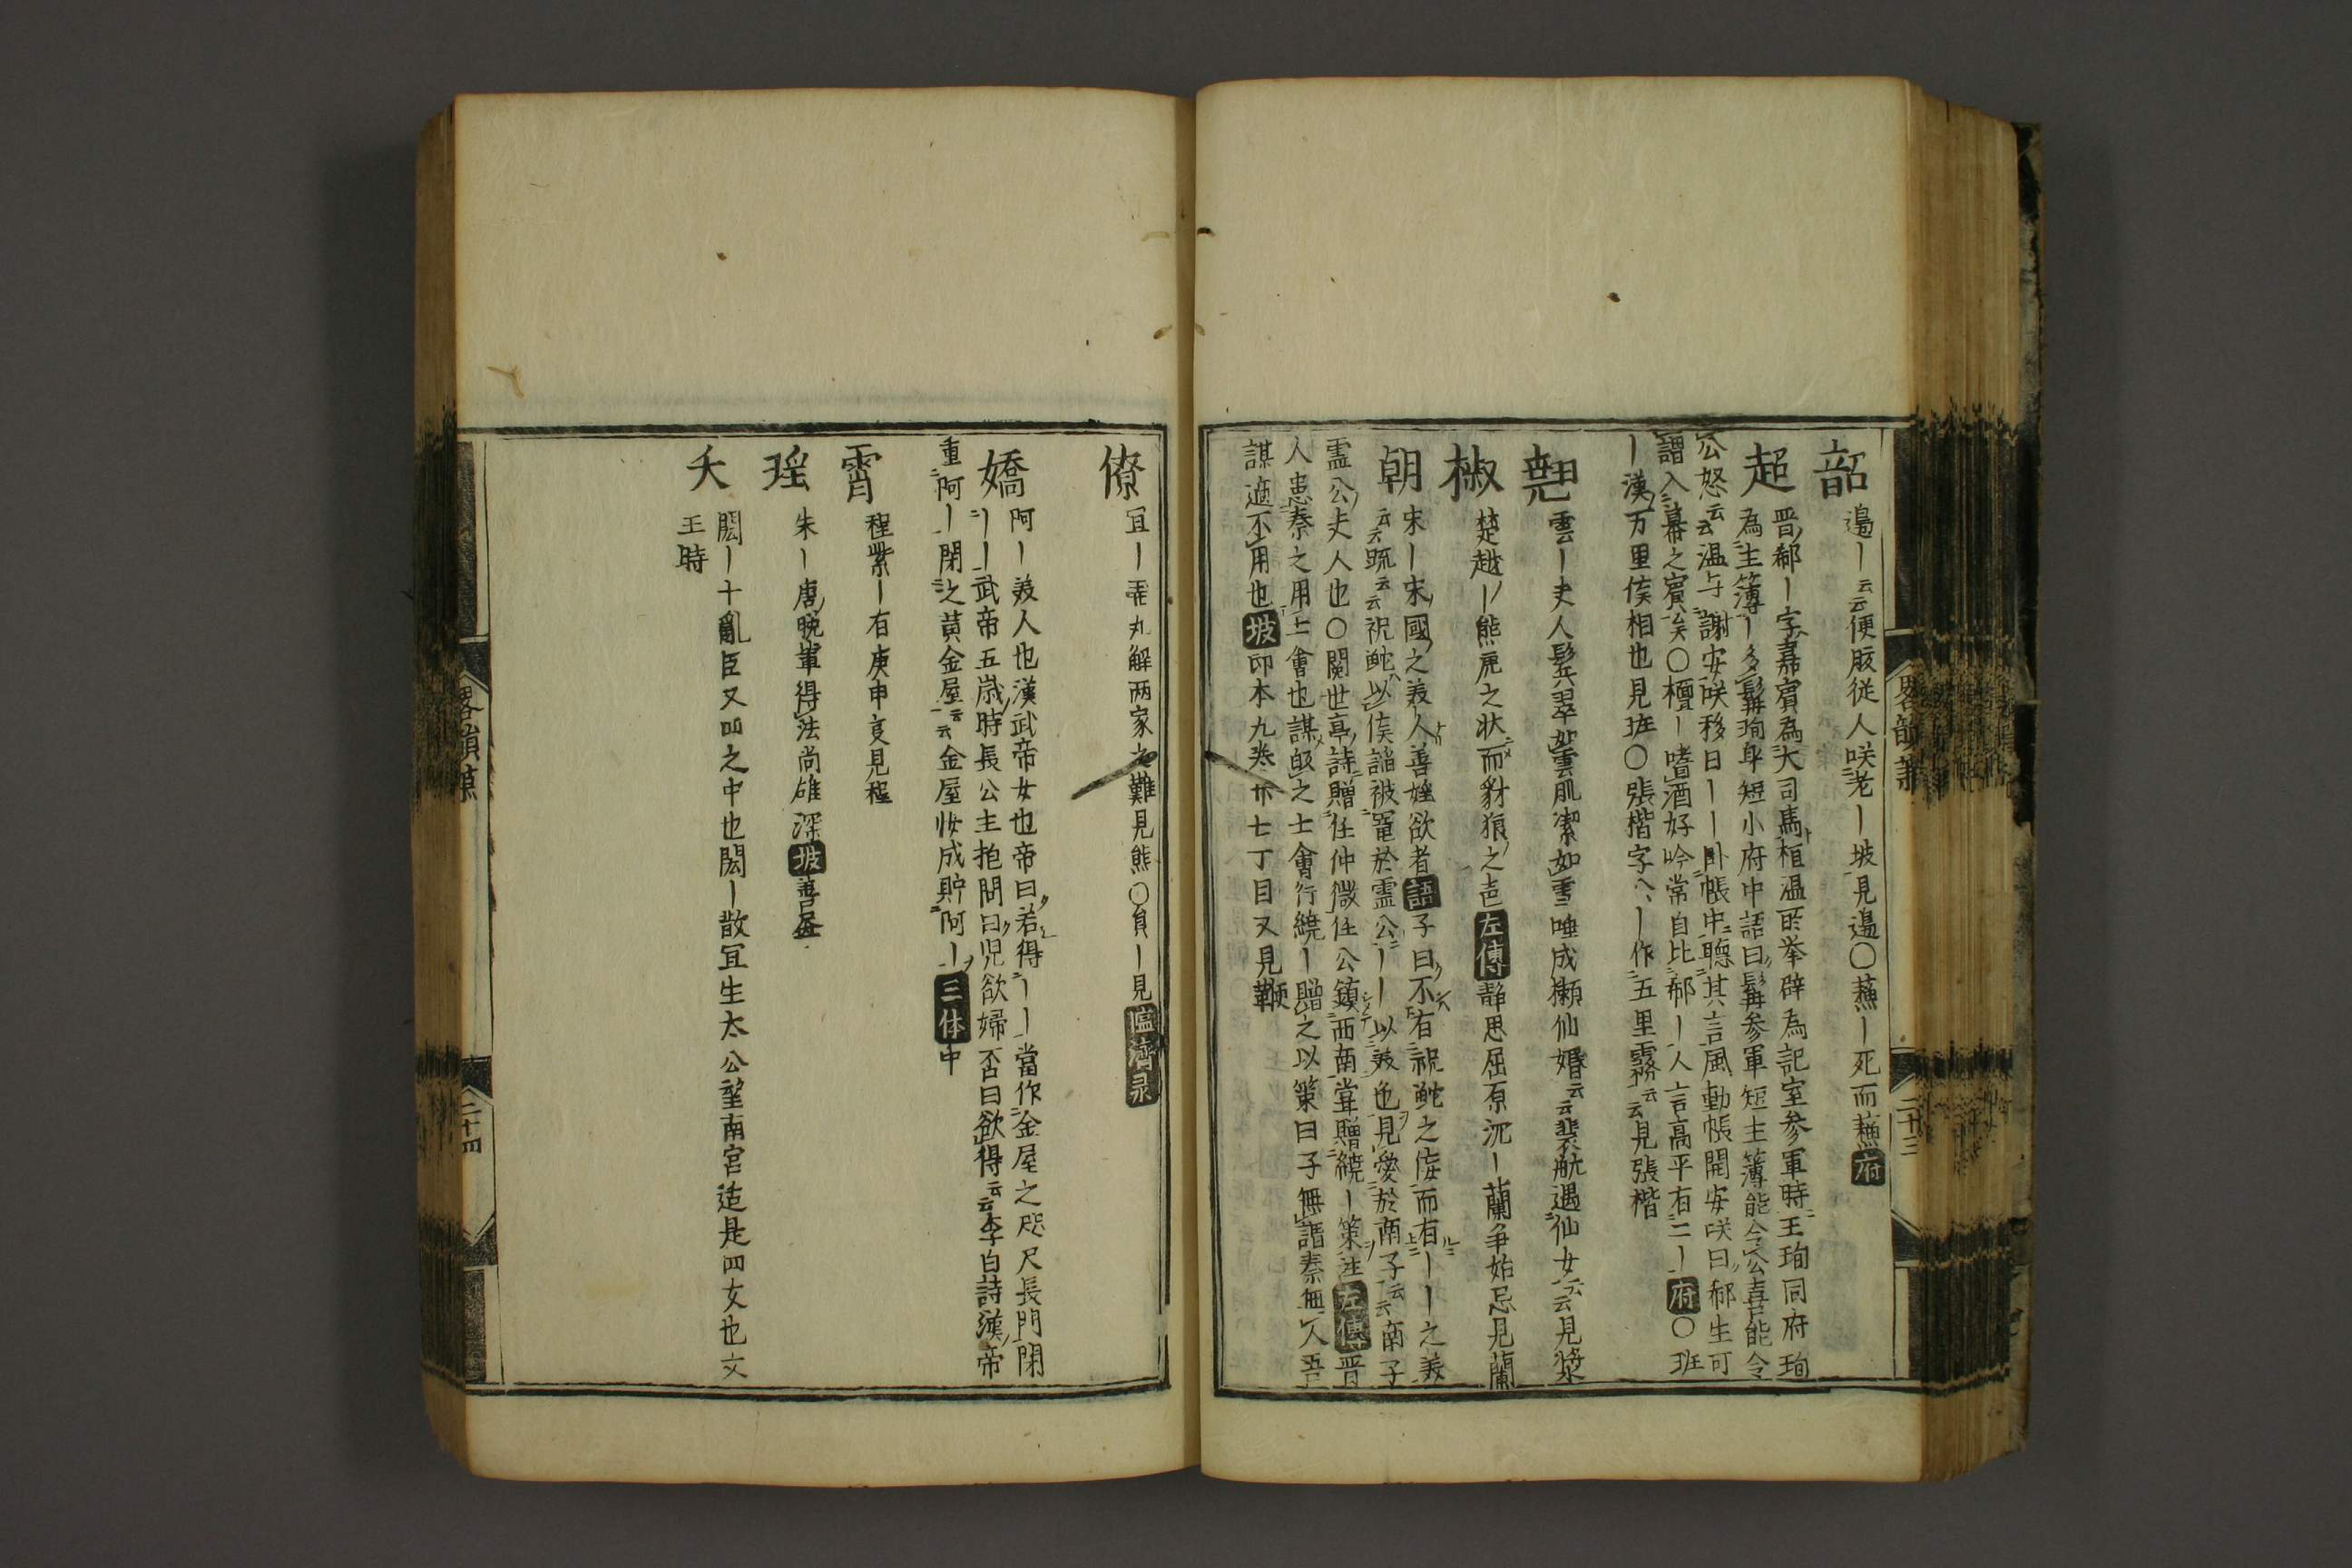 韶 邉丨云云便腹従人咲老丨坡見邉〇蘓丨死而蘓府
超 晋郗丨字嘉賓為大司馬桓温所挙辟為記室参軍時王珣同府珣
為主簿丨多髯珣身短小府中語曰髯参軍短主簿能令公喜能令
公怒云云温与謝安咲移日丨丨卧帳中聴其言風動帳開安咲曰郗生可
謂入幕之賓矣〇檀丨嗜酒好吟常自比郗丨人言高平有二丨府〇班
丨漢万里侯相也見班〇張楷字公丨作五里霧云云見張楷
翹 雲丨夫人髪翠如雲肌潔如雪唾成獺仙婚云云裴航遇仙女云云見漿
椒 楚越丨熊虎之状而豺狼之声左傳静思屈原沉丨蘭争始忌見蘭
朝 宋丨宋國之美人善婬欲者語子曰不有祝鮀之佞而有丨丨之美
云云䟽云云祝鮀以佞諂被寵於霊公丨丨以美色見愛於南子云云南子
霊公夫人也〇閲世亭詩贈任仲微任公鎮西南嘗贈繞丨策注左傳晋
人患秦之用士會也謀皈之士會行繞丨贈之以策曰子無謂秦無人吾
謀適不用也坡印本九巻卅七丁目又見鞭
畧韻 二十三
僚 冝丨弄丸解両家之難見熊〇負丨見
嬌 阿丨美人也漢武帝女也帝曰若得丨丨當作金屋之咫尺長門閉
丨丨武帝五歳時長公主抱問曰児欲婦否曰欲得云云李白詩漢帝
重阿丨閉之黄金屋云云金屋妝成貯阿丨三体中
霄 程紫丨有庚申見程
瑶 朱丨唐晩輩得法尚雄深坡善畫
夭 閎丨十亂臣又四之中也閎丨散冝生太公望南宮适是四友也文
王時
畧韻 二十四